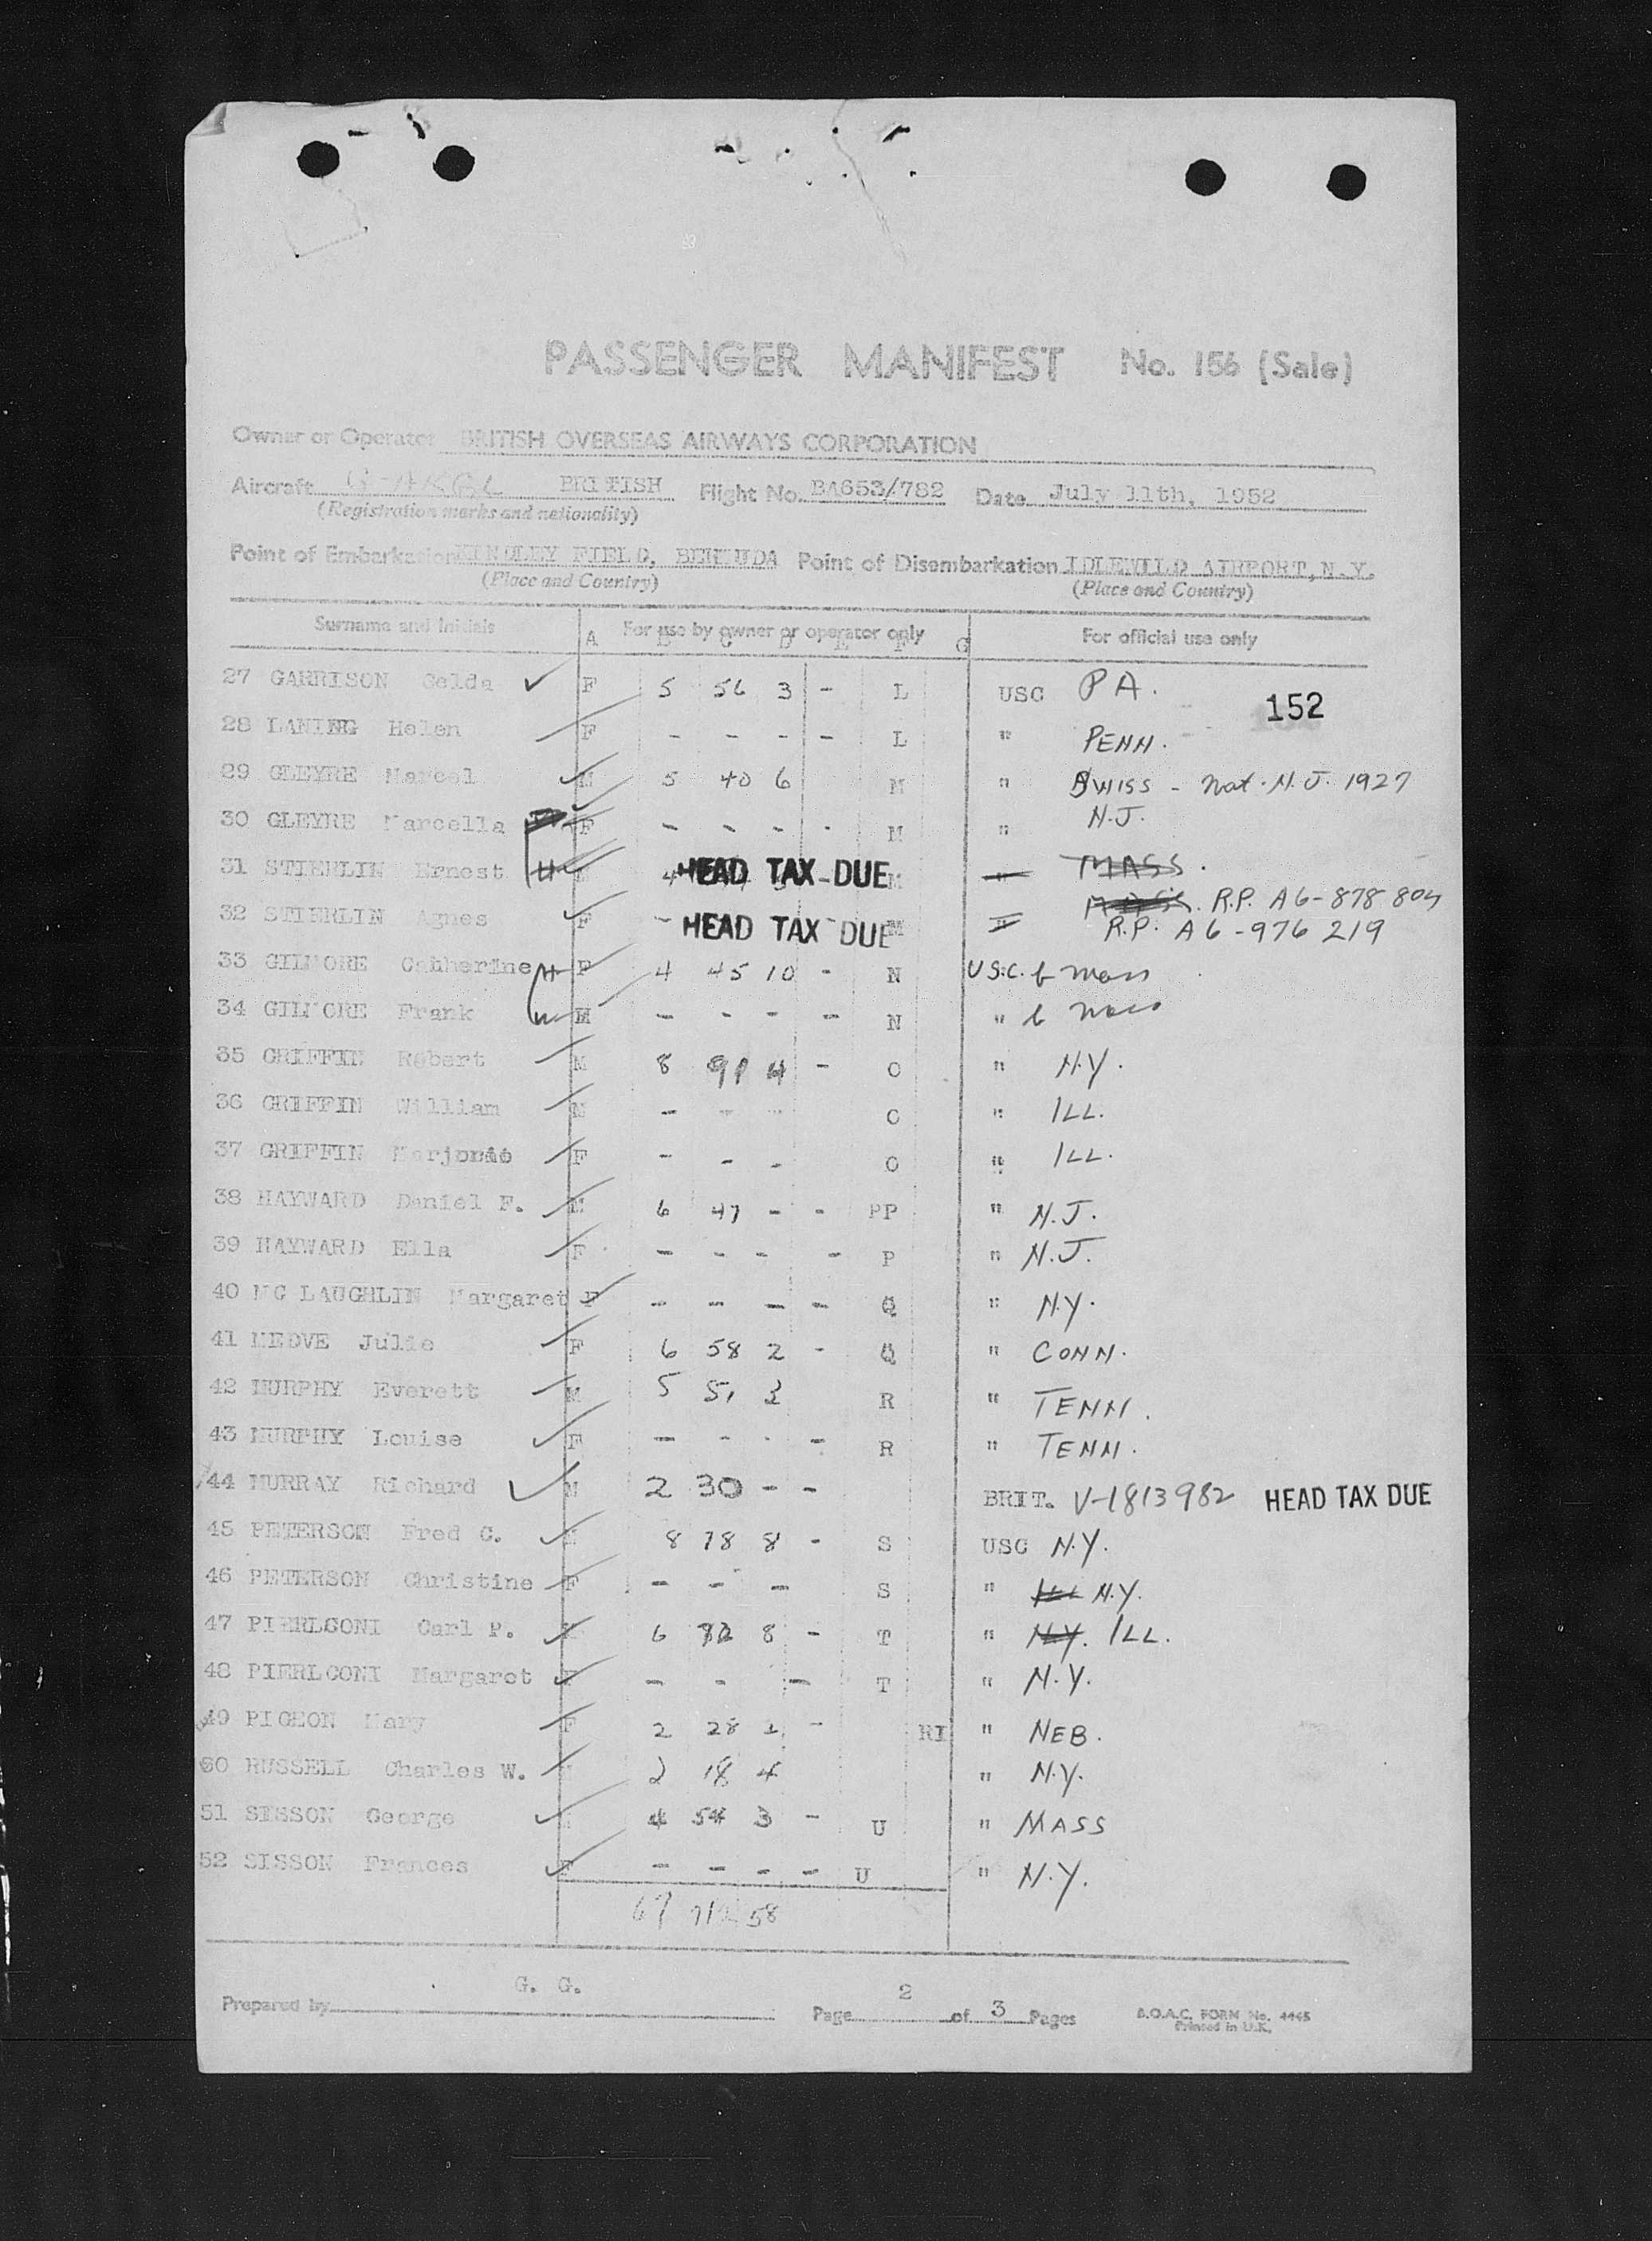 PASSENGER MANIFEST No. 156 (Sale)
Owner or Operator BRITISH OVERSEAS AIRWAYS CORPORATION
Aircraft BRITISH Flight No. BA653/782 Date July 11th, 1952
(Registration marks and nationality)
Point of Embarkation KINDLEY FIELD, BERMUDA Point of Disembarkation IDLEWILD AIRPORT, N.Y.
(Place and Country) (Place and Country)
Surname and Initials For use by owner or operator only For official use only
A B C D E F G
27 GARRISON Selda F 5 56 3 - L USC PA.
152
28 LANING Helen F - - - - L " PENN.
29 GLEYRE Marcel M 5 40 6 M " SWISS - Nat. N.J. 1927
30 GLEYRE Marcella F - - - - M " N.J.
31 STIERLIN Ernest M 4 HEAD TAX DUE M " MASS.
MASS. R.P. A6-878 804
32 STIERLIN Agnes F - HEAD TAX DUE M " R.P. A6-976 219
33 GILMORE Catherine F 4 45 10 - N U.S.C. b Mass
34 GILMORE Frank M - - - - N " b Mass
35 GRIFFIN Robert M 8 91 4 - O " N.Y.
36 GRIFFIN William M - - - O " ILL.
37 GRIFFIN F - - - O " ILL.
38 HAYWARD Daniel F. M 6 47 - - PP " N.J.
39 HAYWARD Ella F - - - - P " N.J.
40 MC LAUGHLIN Margaret F - - - - Q " N.Y.
41 MEDVE Julie F 6 58 2 - Q " CONN.
42 MURPHY Everett M 5 51 3 R " TENN.
43 MURPHY Louise F - - - - R " TENN.
44 MURRAY Richard M 2 30 - - BRIT. V-1813982 HEAD TAX DUE
45 PETERSON Fred C. M 8 78 8 - S USC N.Y.
46 PETERSON Christine F - - - S " ILL N.Y.
47 PIERLEONI Carl P. M 6 8 - T " N.Y. ILL.
48 PIERLEONI Margaret F - - - T " N.Y.
49 PIGEON Mary F 2 28 1 - RI " NEB.
50 RUSSELL Charles W. M 2 18 4 " N.Y.
51 SISSON George M 4 54 3 - U " MASS
52 SISSON Frances F - - - - U " N.Y.
58
Prepared by G. G. Page 2 of 3 Pages B.O.A.C. FORM No. 4445
Printed in U.K.